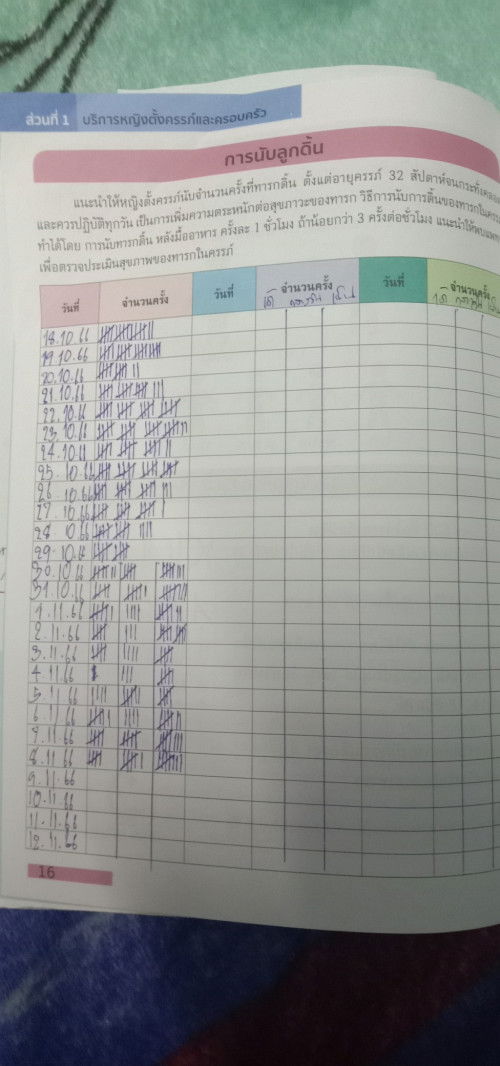 ส่วนที่ 1 บริการหญิงตั้งครรภ์และครอบครัว
การนับลูกดิ้น
แนะนำให้หญิงตั้งครรภ์นับจำนวนครั้งที่ทารกดิ้น ตั้งแต่อายุครรภ์ 32 สัปดาห์จนกระทั่งคลอด
และควรปฏิบัติทุกวัน เป็นการเพิ่มความตระหนักต่อสุขภาวะของทารก วิธีการนับการดิ้นของทารกในครรภ์
ทำได้โดย การนับทารกดิ้น หลังมื้ออาหาร ครั้งละ 1 ชั่วโมง ถ้าน้อยกว่า 3 ครั้งต่อชั่วโมง แนะนำให้พบแพทย์
เพื่อตรวจประเมินสุขภาพของทารกในครรภ์
วันที่ จำนวนครั้ง วันที่ จำนวนครั้ง วันที่ จำนวนครั้ง
18.10.66
19.10.66
20.10.66
21.10.66
22.10.66
23.10.66
24.10.66
25.10.66
26.10.66
27.10.66
28.10.66
29.10.66
30.10.66
31.10.66
1.11.66
2.11.66
3.11.66
4.11.66
5.11.66
6.11.66
7.11.66
8.11.66
9.11.66
10.11.66
11.11.66
12.11.66
16